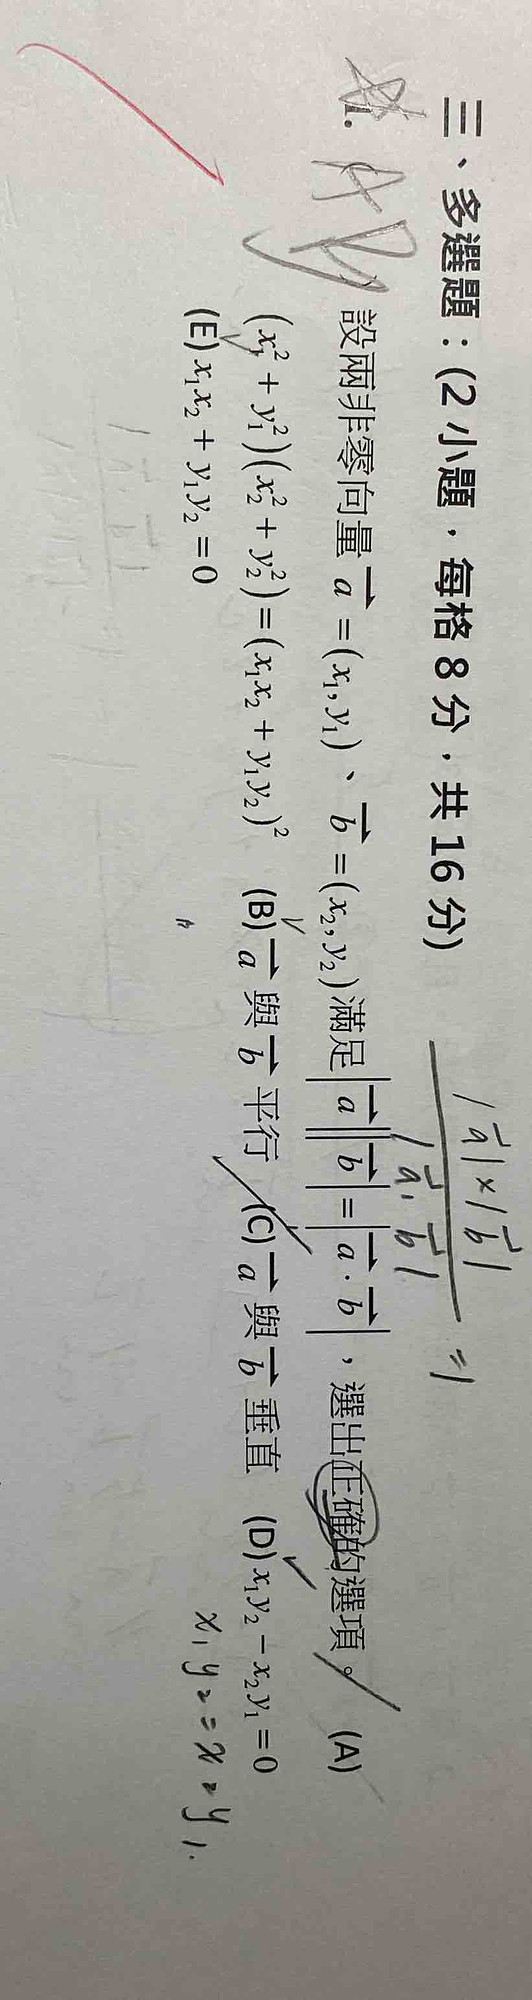 三、多選題：(2 小題，每格 8 分，共 16 分)
|a⃗|×|b⃗|
|a⃗·b⃗|
=1
1. 設兩非零向量 a⃗ = (x₁, y₁)、b⃗ = (x₂, y₂)滿足|a⃗||b⃗| = |a⃗·b⃗|，選出正確的選項。 (A)
(x₁² + y₁²)(x₂² + y₂²) = (x₁x₂ + y₁y₂)² (B) a⃗ 與 b⃗ 平行 (C) a⃗ 與 b⃗ 垂直 (D) x₁y₂ − x₂y₁ = 0
(E) x₁x₂ + y₁y₂ = 0
x₁y₂ = x₂y₁.